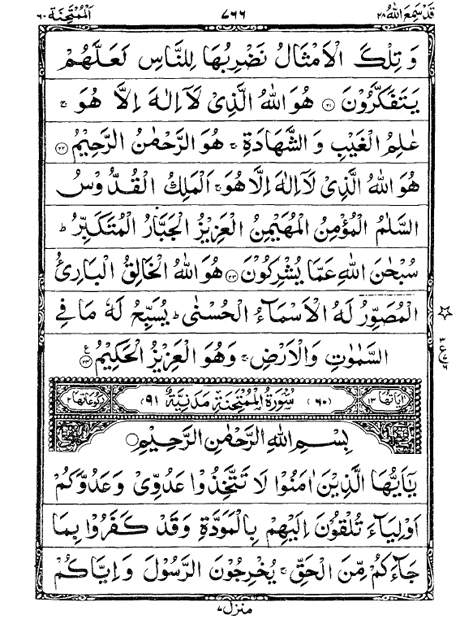 قَدْ سَمِعَ اللّٰهُ ٢٨ ٧٦٦ اَلْمُمْتَحِنَة ٦٠
وَ تِلْكَ الْاَمْثَالُ نَضْرِبُهَا لِلنَّاسِ لَعَلَّهُمْ
يَتَفَكَّرُوْنَ ﴿٢١﴾ هُوَ اللّٰهُ الَّذِىْ لَاۤ اِلٰهَ اِلَّا هُوَ ۚ
عٰلِمُ الْغَيْبِ وَ الشَّهَادَةِ ۚ هُوَ الرَّحْمٰنُ الرَّحِيْمُ ﴿٢٢﴾
هُوَ اللّٰهُ الَّذِىْ لَاۤ اِلٰهَ اِلَّا هُوَ ۚ اَلْمَلِكُ الْقُدُّوْسُ
السَّلٰمُ الْمُؤْمِنُ الْمُهَيْمِنُ الْعَزِيْزُ الْجَبَّارُ الْمُتَكَبِّرُ ؕ
سُبْحٰنَ اللّٰهِ عَمَّا يُشْرِكُوْنَ ﴿٢٣﴾ هُوَ اللّٰهُ الْخَالِقُ الْبَارِئُ
الْمُصَوِّرُ لَهُ الْاَسْمَآءُ الْحُسْنٰى ؕ يُسَبِّحُ لَهٗ مَا فِى
السَّمٰوٰتِ وَ الْاَرْضِ ۚ وَ هُوَ الْعَزِيْزُ الْحَكِيْمُ ﴿٢٤﴾ ع
اٰيَاتُهَا ١٣ ﴿٦٠﴾ سُوْرَةُ الْمُمْتَحِنَةِ مَدَنِيَّةٌ ﴿٩١﴾ رُكُوْعَاتُهَا ٢
بِسْمِ اللّٰهِ الرَّحْمٰنِ الرَّحِيْمِ
يٰۤاَيُّهَا الَّذِيْنَ اٰمَنُوْا لَا تَتَّخِذُوْا عَدُوِّىْ وَ عَدُوَّكُمْ
اَوْلِيَآءَ تُلْقُوْنَ اِلَيْهِمْ بِالْمَوَدَّةِ وَ قَدْ كَفَرُوْا بِمَا
جَآءَكُمْ مِّنَ الْحَقِّ ۚ يُخْرِجُوْنَ الرَّسُوْلَ وَ اِيَّاكُمْ
منزل ٧